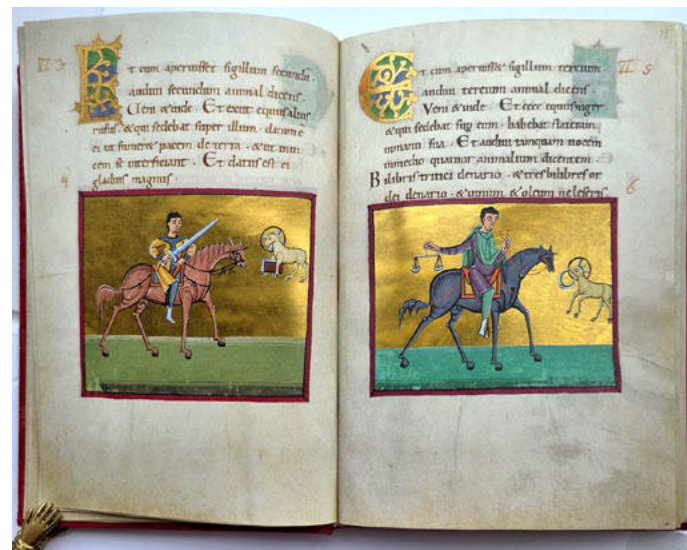 VI 3
Et cum aperuisset sigillum secundū.
audiui secundum animal dicens.
Ueni & uide. Et exiuit equus alius
rufus. & qui sedebat super illum. datum e
ei ut sumeret pacem de terra. & ut inui
cem se interficiant. Et datus est ei
4
gladius magnus.
VI 5
Et cum aperuisset sigillum tercium.
audiui tercium animal dicens.
Veni & uide. Et ecce equus niger.
& qui sedebat sup eum. habebat stateram
in manu sua. Et audiui tamquam uocem
in medio quatuor animalium dicentem.
6
Bilibris tritici denario. & tres bilibres or
dei denario. & uinum & oleum ne leseris.